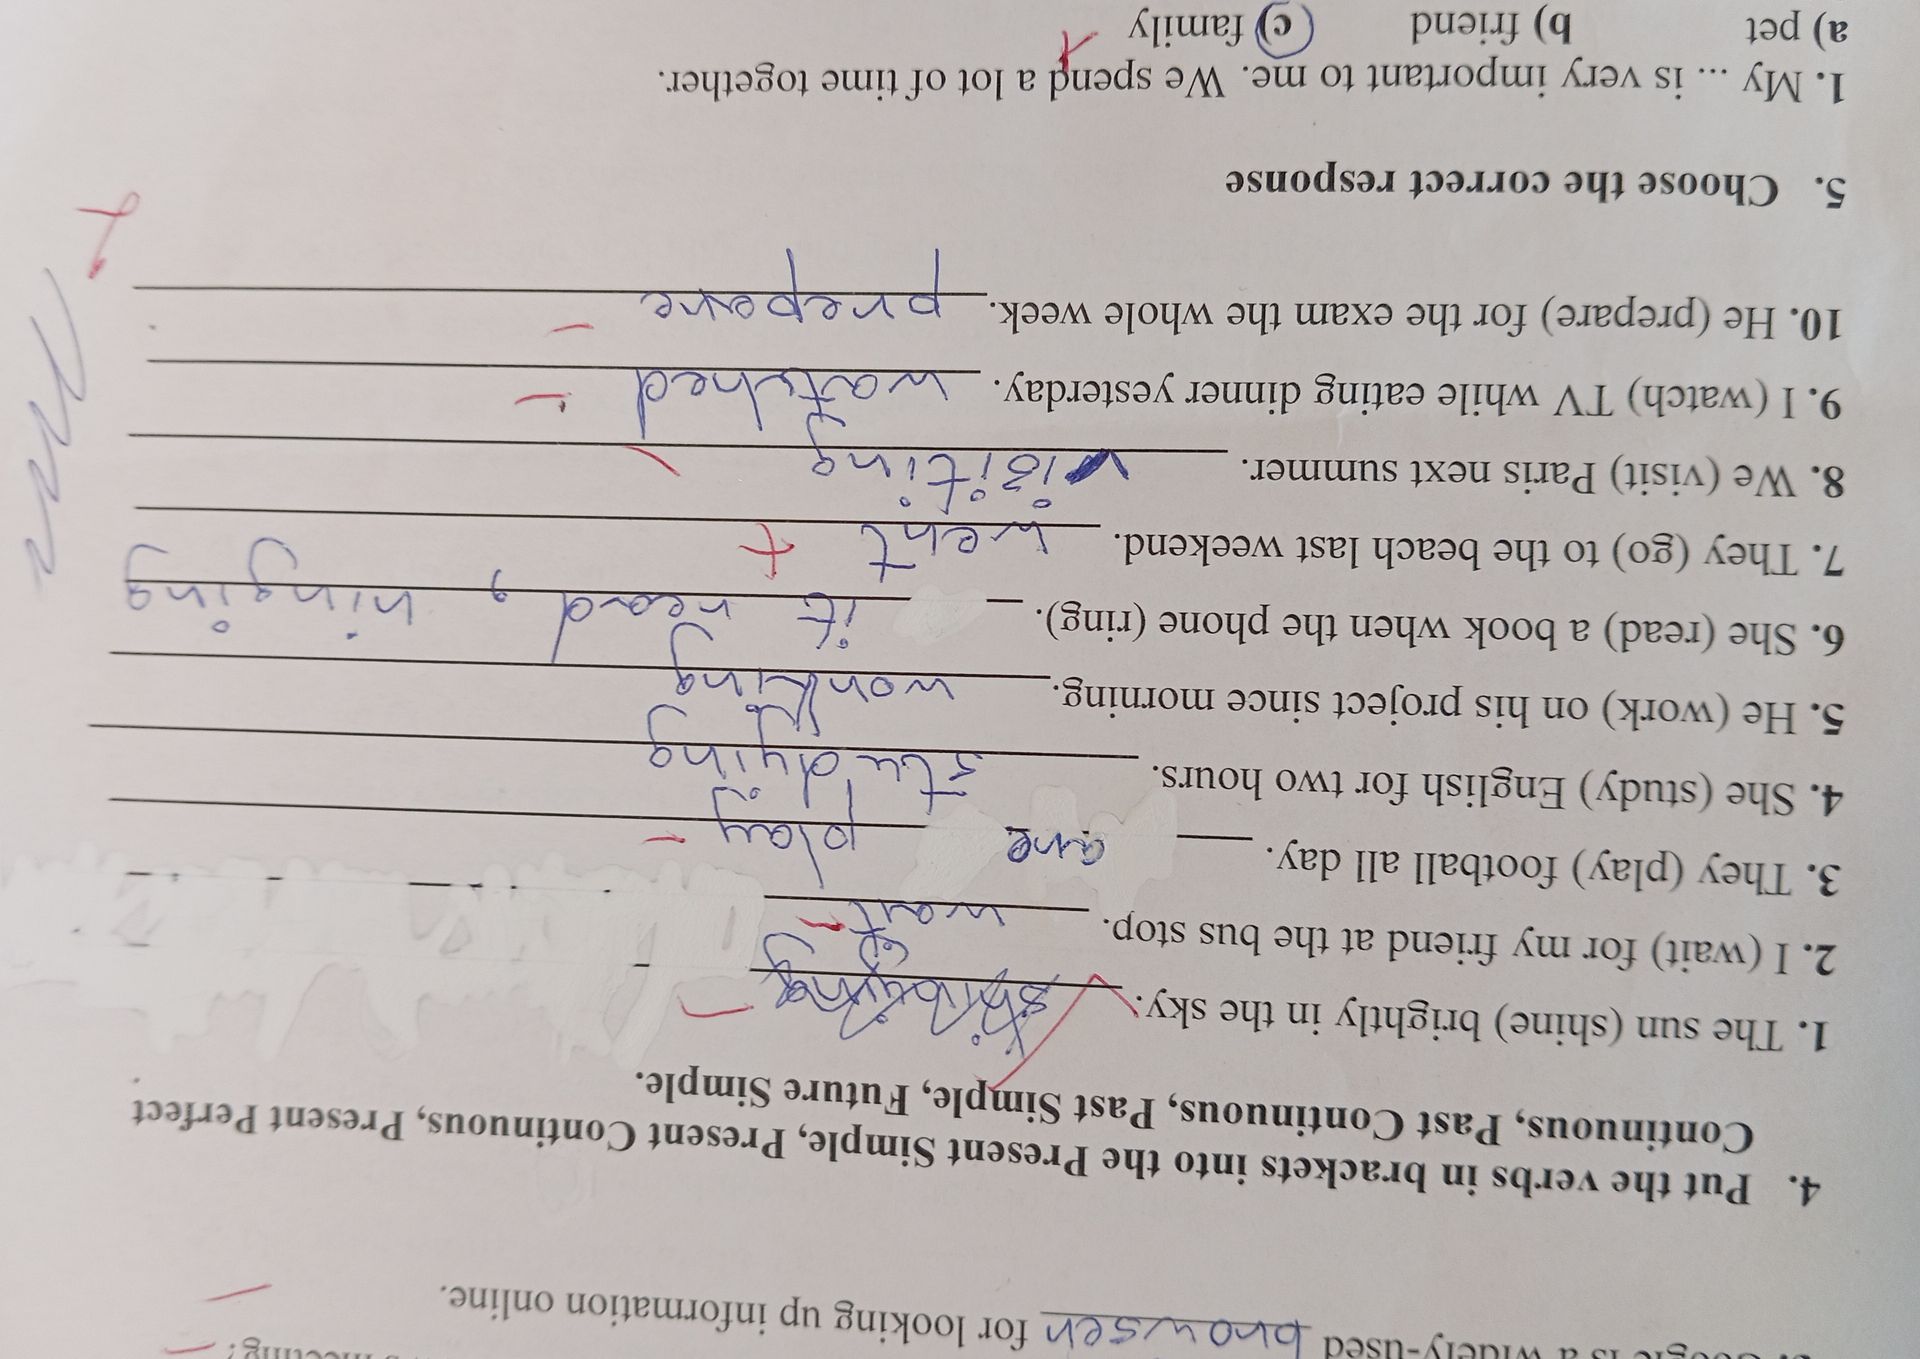 is a widely-used browser for looking up information online.
4. Put the verbs in brackets into the Present Simple, Present Continuous, Present Perfect
Continuous, Past Continuous, Past Simple, Future Simple.
1. The sun (shine) brightly in the sky.
2. I (wait) for my friend at the bus stop. wait
3. They (play) football all day. are play
4. She (study) English for two hours. studying
5. He (work) on his project since morning. working
6. She (read) a book when the phone (ring). it read, ringing
7. They (go) to the beach last weekend. went +
8. We (visit) Paris next summer. visiting
9. I (watch) TV while eating dinner yesterday. watched
10. He (prepare) for the exam the whole week. prepare
5. Choose the correct response
1. My ... is very important to me. We spend a lot of time together.
a) pet b) friend c) family